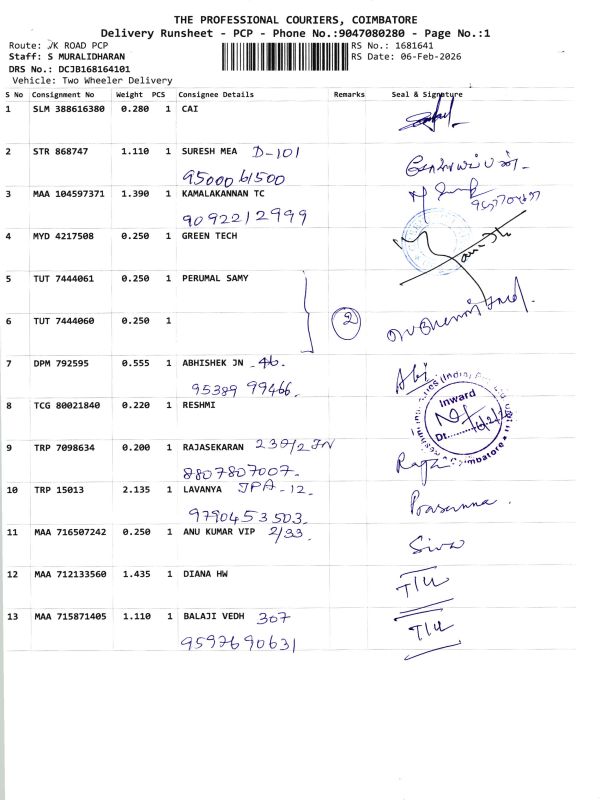 THE PROFESSIONAL COURIERS, COIMBATORE
Delivery Runsheet - PCP - Phone No.:9047080280 - Page No.:1
Route: VK ROAD PCP RS No.: 1681641
Staff: S MURALIDHARAN RS Date: 06-Feb-2026
DRS No.: DCJB168164101
Vehicle: Two Wheeler Delivery
S No Consignment No Weight PCS Consignee Details Remarks Seal & Signature
1 SLM 388616380 0.280 1 CAI
2 STR 868747 1.110 1 SURESH MEA D-101
95000 61500
3 MAA 104597371 1.390 1 KAMALAKANNAN TC
9092212999
4 MYD 4217508 0.250 1 GREEN TECH
5 TUT 7444061 0.250 1 PERUMAL SAMY
6 TUT 7444060 0.250 1 2
7 DPM 792595 0.555 1 ABHISHEK JN 46. Abi
95389 99466.
8 TCG 80021840 0.220 1 RESHMI Inward
9 TRP 7098634 0.200 1 RAJASEKARAN 239/2 JN
8807807007.
10 TRP 15013 2.135 1 LAVANYA JPA-12. Prasanna.
9790453503.
11 MAA 716507242 0.250 1 ANU KUMAR VIP 2/33. Siva
12 MAA 712133560 1.435 1 DIANA HW T/U
13 MAA 715871405 1.110 1 BALAJI VEDH 307 T/U
9597690631